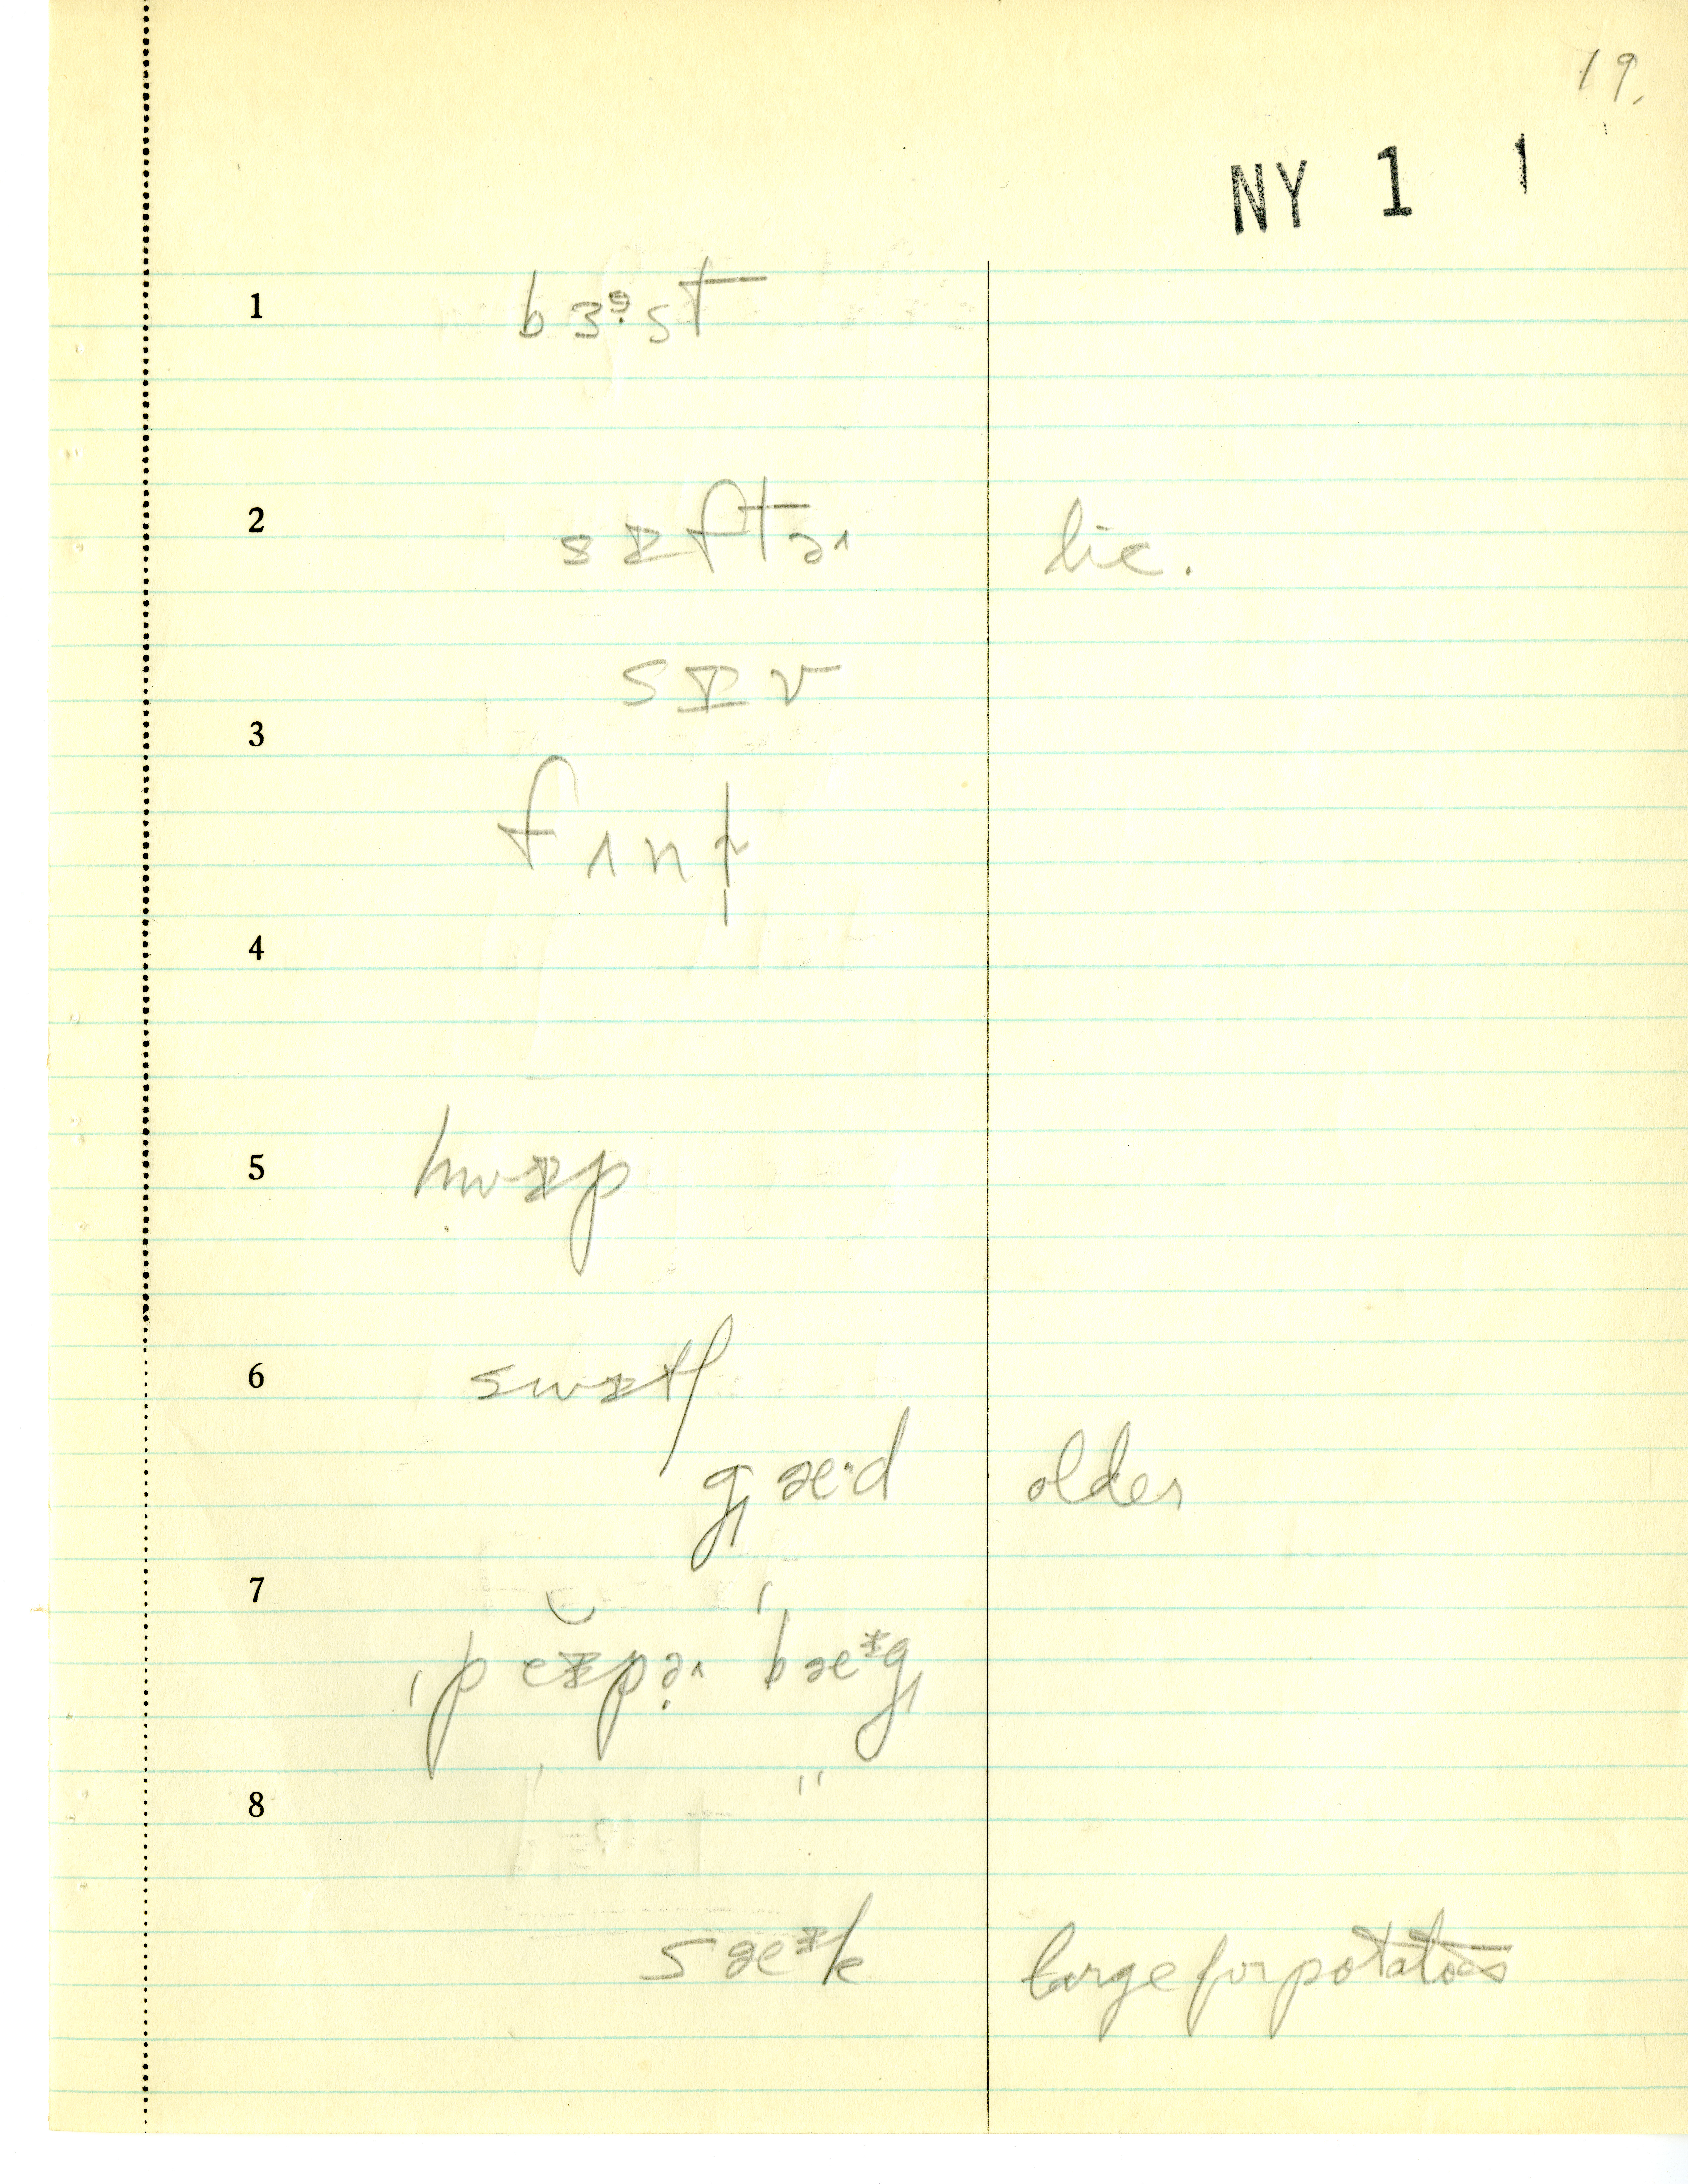 19.
NY 1 1
1 bɜᵊ·st
2 sɪftɚ lie.
sɪv
3
fʌnɫ
4
5 hwɪp
6 swɪtʃ
gæ·d older
7
ˌpĕɪpɚ ˈbæᶦg
8 "
sæᶦk large for potatoes